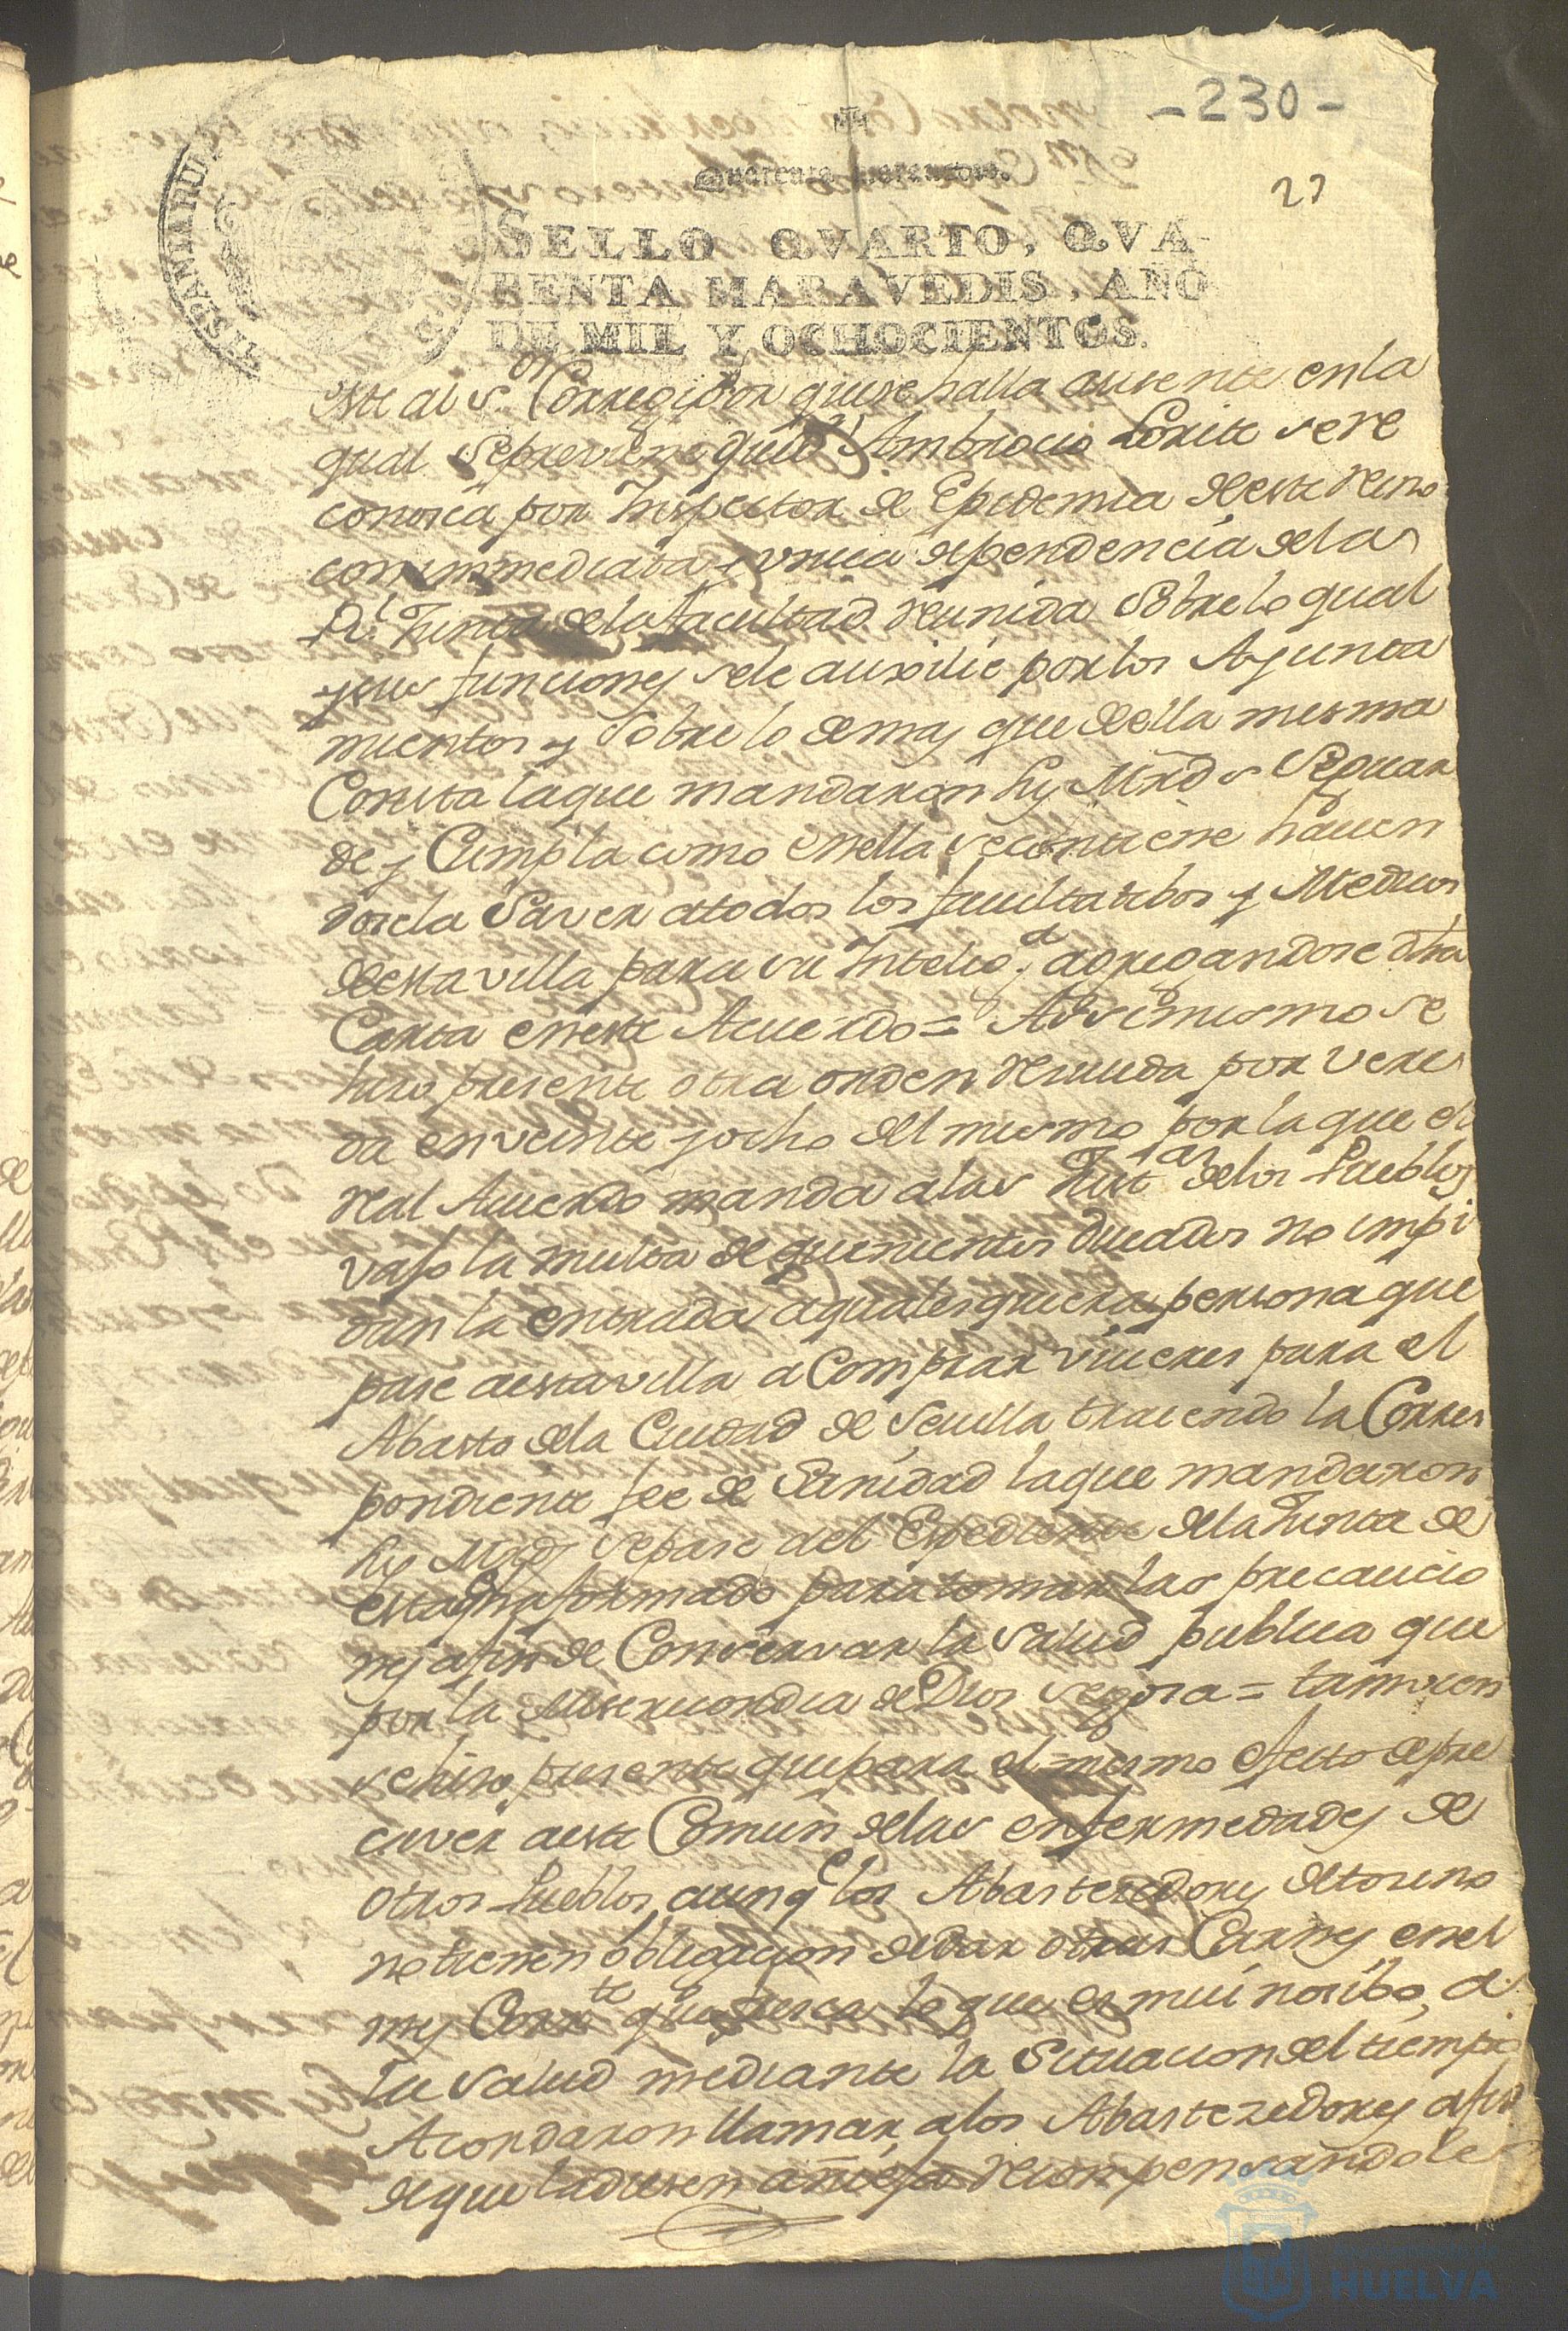 -230-
27
Quarenta maravedis.
HISPANIARUM
SELLO QVARTO, QVA-
RENTA MARAVEDIS, AÑO
DE MIL Y OCHOCIENTOS.
este al Sor Corregidor que se halla ausente en la
qual se previene que dn Ambrocio Lorite se re
conosca por Inspector de Epidemia de este Reino
con immediata y vnica dependencia de la
Rl Junta de la Facultad reunida sobre lo qual
y sus funciones se le auxilie por los Ayunta
mientos y sobre lo demas que de ella mesma
Consta la que mandaron sus Mrds se guar
de y Cumpla como en ella se contiene hacien
dosela Saver a todos los facultatibos y Medicos
de esta villa para su Intelig.a agregandose dha
Carta en este Acuerdo = Assimismo se
hizo presente otra orden recivida por vere
da en veinte y ocho del mesmo por la que el
real Acuerdo manda a las Just.as de los Pueblos
vajo la multa de quinientos ducados no impi
dan la entrada a qualesquiera persona que
pase a esta villa a Comprar viveres para el
Abasto de la Ciudad de Sevilla trayendo la Corres
pondiente fee de Sanidad la que mandaron
sus Mrds se pase al Expediente de la Junta de
esta formado para tomar las precaucio
nes a fin de Conservar la Salud publica que
por la Misericordia de Dios se goza = tamvien
se hizo presente que para el mismo efecto de pre
caver a este Comun de las enfermedades de
otros Pueblos, aunqe los Abastezedores de tosino
no tienen obligacion de dar otras Carnes en el
mes Corrte que fresca lo que es mui nosibo, a
la Salud mediante la Situacion del tiempo
Acordaron llamar a los Abastezedores a fin
de que la diesen añeja recompensandole
HUELVA